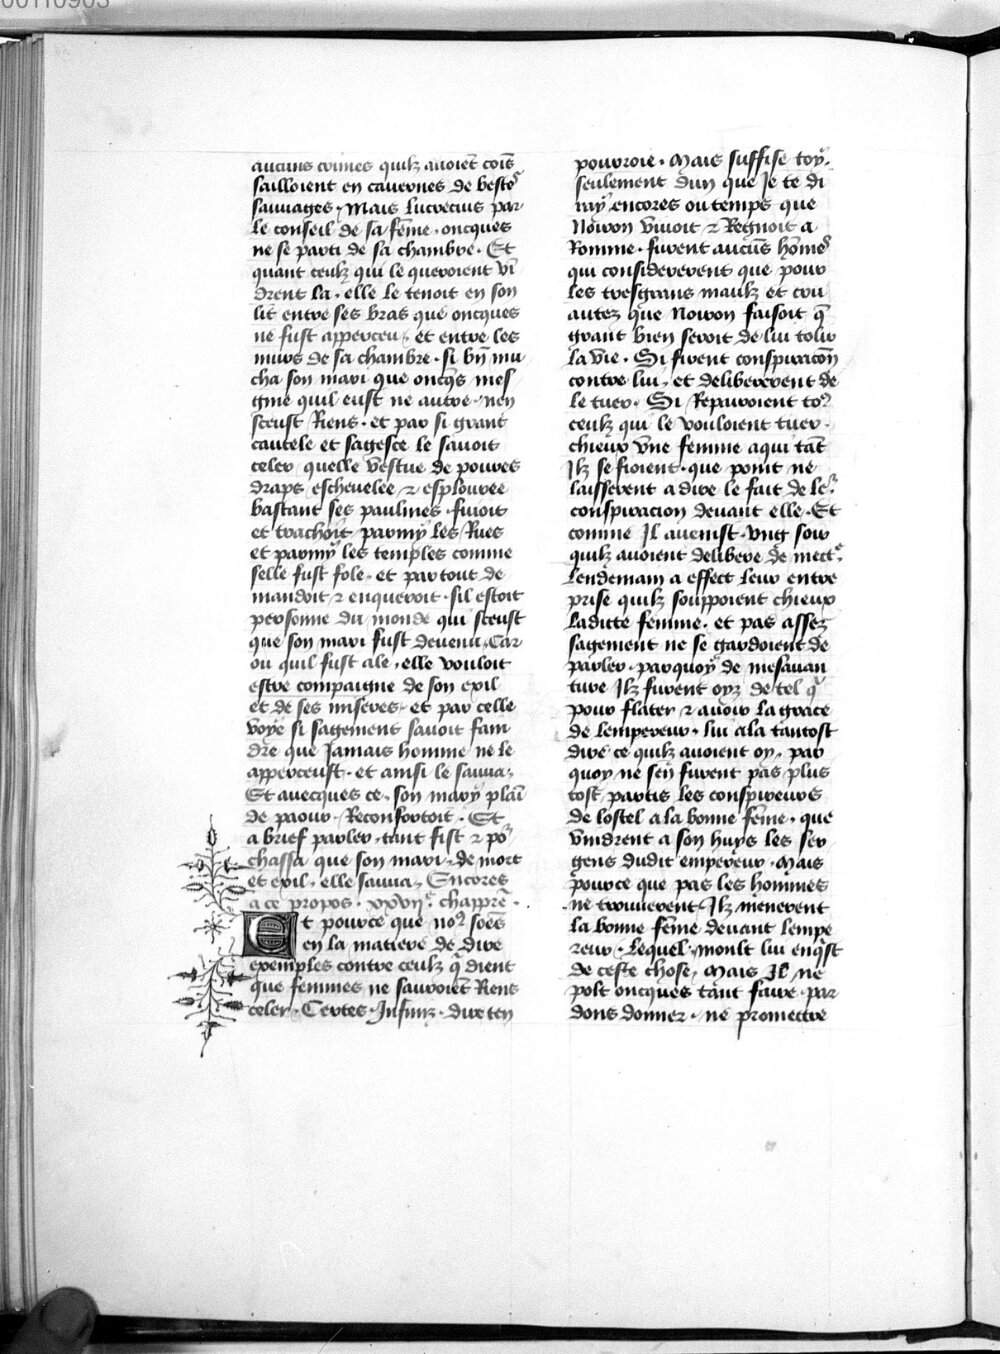 00110903
aucuns crimes quilz auoiēt cōis
sailloient en cauernes de bestes
sauuages. Mais lucrecius par
le conseil de sa fēme. oncques
ne se parti de sa chambre. Et
quant ceulz qui le queroient vī
drent la. elle le tenoit en son
lit entre ses bras que oncques
ne fust apperceu. et entre les
murs de sa chambre. si bn̄ mu
cha son mari que oncq̄s mes
gnie quil eust ne autre. nen
sceust Riens. et par si grant
cautele et sagesce le sauoit
celer quelle vestue de poures
draps escheuelee ⁊ esplouree
bastant ses paulmes. fuioit
et trachoit parmy les Rues
et parmy les temples comme
selle fust fole. et par tout de
mandoit ⁊ enqueroit. sil estoit
personne du monde qui sceust
que son mari fust deuenu. Car
ou quil fust ale. elle vouloit
estre compaigne de son exil
et de ses miseres. et par celle
voye si sagement sauoit fain
dre que Jamais homme ne le
apperceust. et ainsi le sauua.
Et auecques ce. son mary plaī
de paour Reconfortoit. Et
a brief parler. tant fist ⁊ po͛
chassa que son mari. de mort
et exil. elle sauua. Encores
a ce propos. xxvijᵉ. chappr̄e.
Et pource que noꝰ soēs
en la matiere de dire
exemples contre ceulz q̄ dient
que femmes ne sauroiēt Riens
celer. Certes Infiniz. dire ten
pourroie. Mais suffise toy.
seulement dun que Je te di
ray encores ou temps que
Noiron viuoit ⁊ Regnoit a
Romme. furent aucūs hōmes
qui considererent que pour
les tresgrans maulz et cru
autez que Noiron faisoit q̄
grant bien seroit de lui tolir
la vie. Si firent conspiracōn
contre lui. et delibererent de
le tuer. Si Repairoient toꝰ
ceulz qui le vouloient tuer.
chieux vne femme a qui tāt
Ilz se fioient. que point ne
laisserent a dire le fait de le͛
conspiracion deuant elle. Et
comme Il auenist. vng soir
quilz auoient delibere de mect͛e
lendemain a effect leur entre
prise quilz souppoient chieux
ladicte femme. et pas assez
sagement ne se gardoient de
parler. parquoy de mesauan
ture Ilz furent oyz de tel q̄
pour flater ⁊ auoir la grace
de lempereur. lui ala tātost
dire ce quilz auoient oy. par
quoy ne sen furent pas plus
tost partis les conspireurs
de lostel a la bonne fēme. que
vindrent a son huys les ser
gens dudit empereur. Mais
pource que pas les hommes
ne trouuerent. Ilz menerent
la bonne fēme deuant lempe
reur. lequel. moult lui enq̄st
de ceste chose. Mais Il ne
polt oncques tant faire. par
dons donner. ne promectre